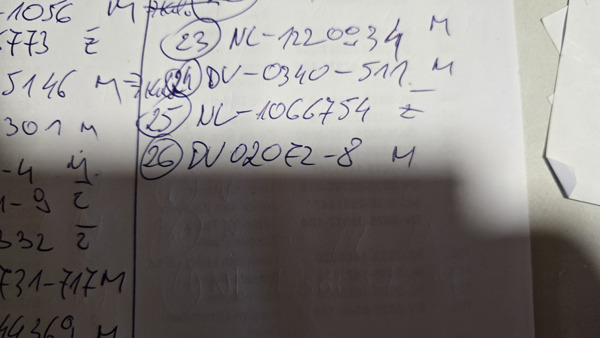 -1056 M
773 ž
5146 M
301 M
-4 M
-9 ž
332 ž
731-717 M
44369 M
23 NL-1220934 M
24 DV-0340-511 M
25 NL-1066754 ž
26 DV02072-8 M